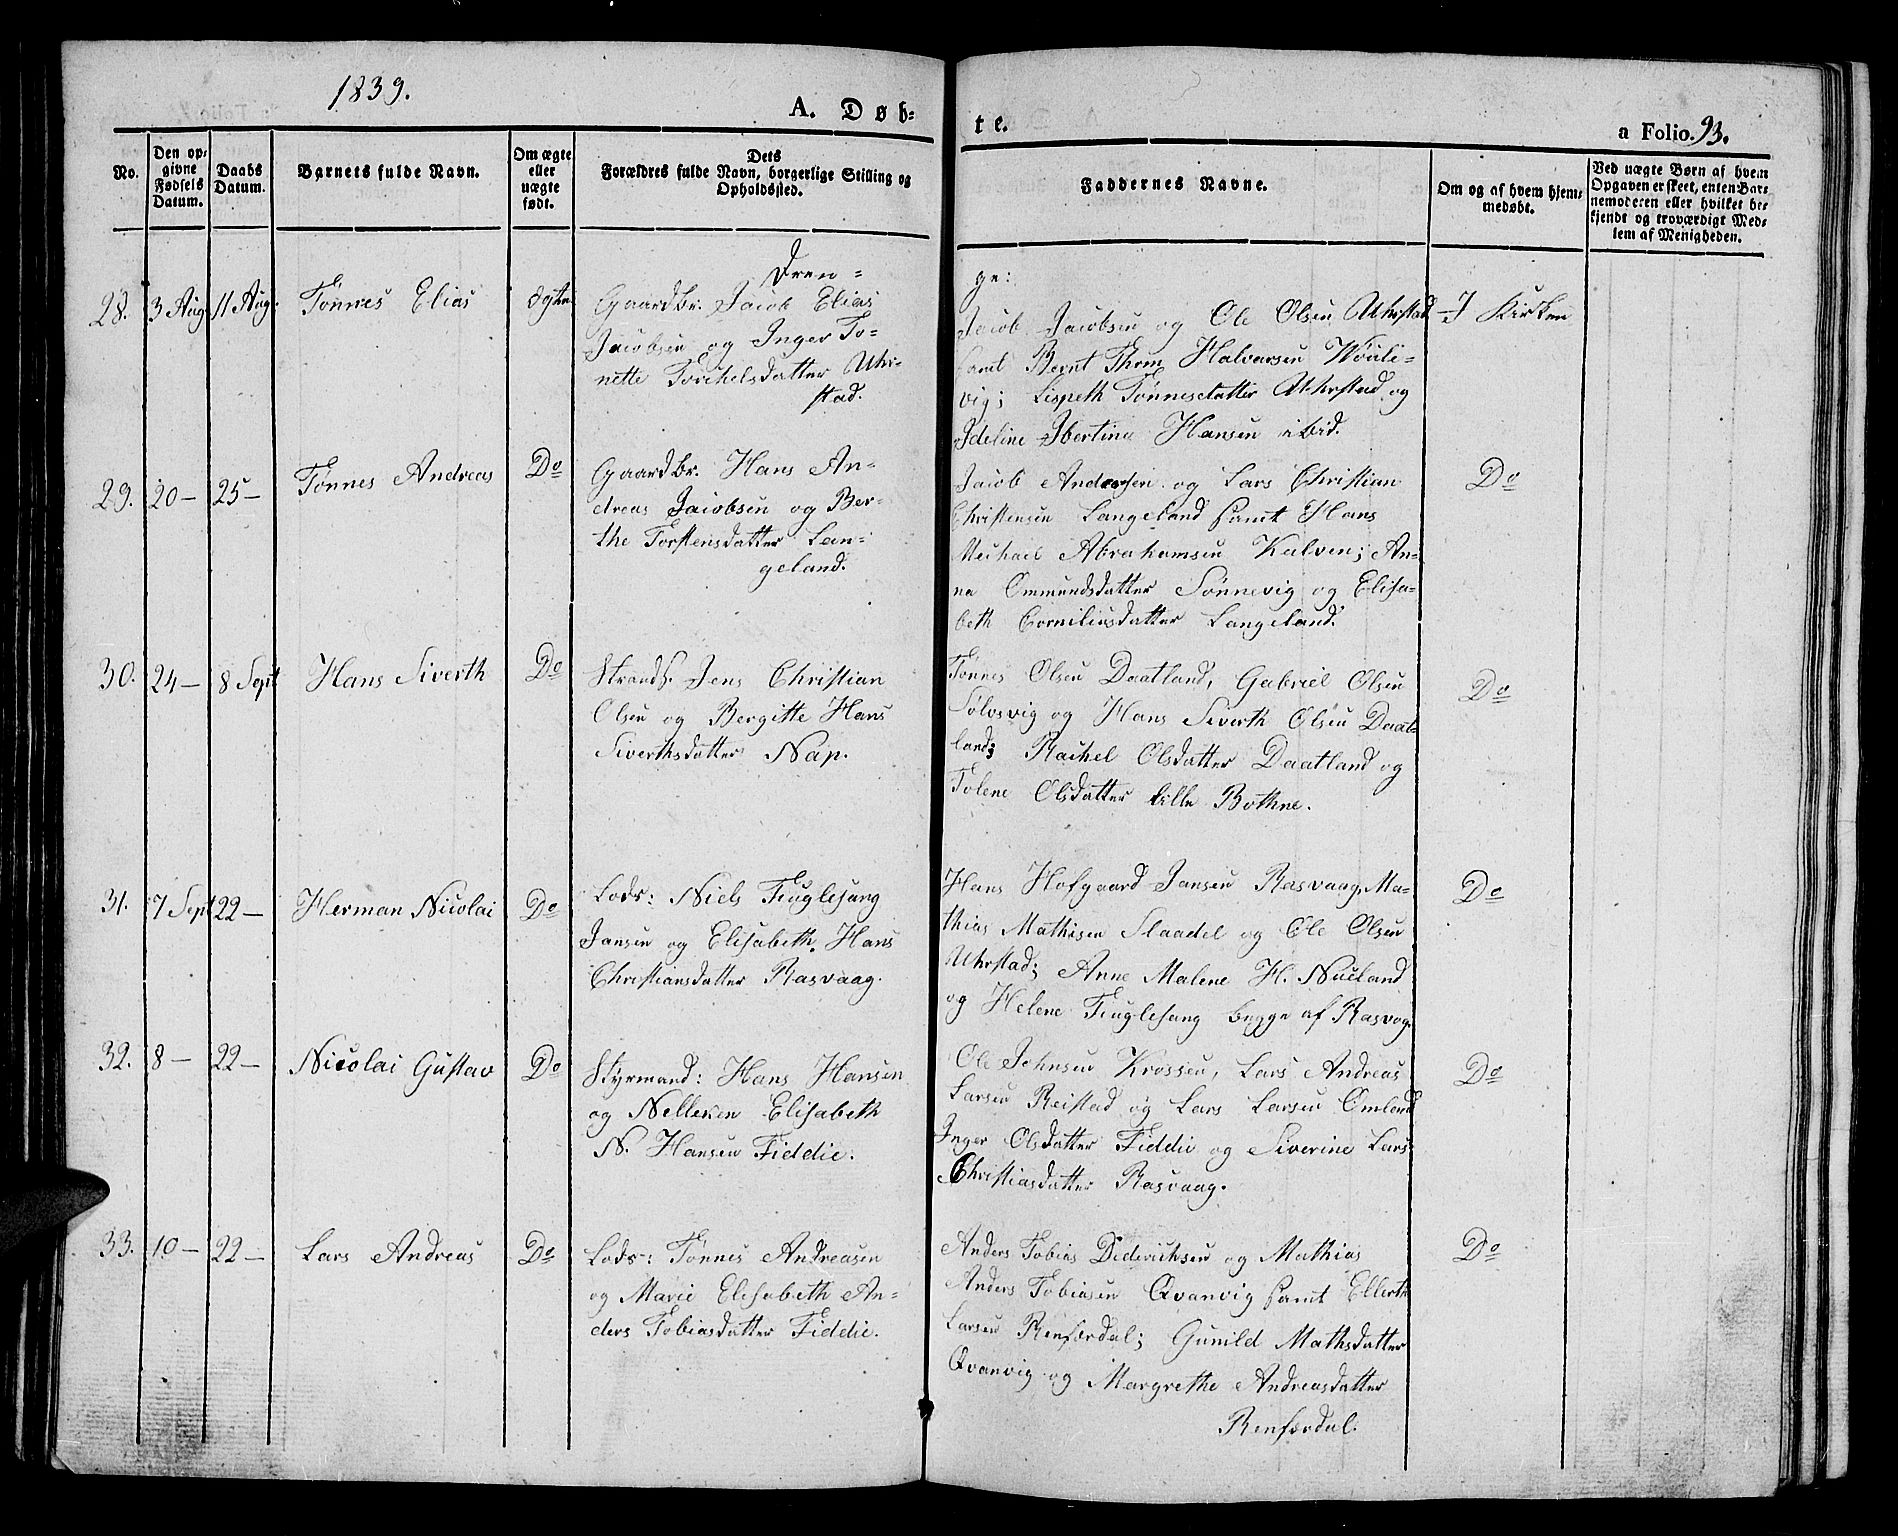 1839.
A. Døb-
te.
a Folio. 93.
No.
Den op-
givne
Fødsels
Datum.
Daabs
Datum.
Barnets fulde Navn.
Om ægte
eller
uægte
født.
Dets
Forældres fulde Navn, borgerlige Stilling og
Opholdssted.
Faddernes Navne.
Om og af hvem hjem-
medøbt.
Ved uægte Børn af hvem
Opgaven er skeet, enten Bar-
nemoderen eller hvilket be-
kjendt og troværdigt Med-
lem af Menigheden.
Dren=
ge:
28. 3 Aug. 11 Aug. Tønnes Elias ægte
Gaardbr. Jacob Elias
Jacobsen og Inger To-
nette Torchelsdatter Uhr-
stad.
Jacob Jacobsen og Ole Olsen Uhrstad
samt Bernt Thom Halvorsen
vig; Lispeth Tønnesdatter Uhrstad og
Ideline Ibertina Hansen ibid.
I Kirken
29. 20 — 25 — Tønnes Andreas Do
Gaardbr. Hans An-
dreas Jacobsen og Ber-
the Torstensdatter Lan-
geland.
Jacob Andersen og Lars Christian
Christensen Langeland samt Hans
Michael Abrahamsen Kalven; An-
na Ommundsdatter Sønnevig og Elisa-
beth Corneliusdatter Langeland.
Do
30. 24 — 8 Sept Hans Siverth Do
Strands. Jens Christian
Olsen og Bergitte Hans
Siverthsdatter Nap.
Tønnes Olsen Daatland, Gabriel Olsen
Solvsvig og Hans Siverth Olsen Daat-
land; Rachel Olsdatter Daatland og
Tolene Olsdatter lille Bothne.
Do
31. 7 Sept 22 — Herman Nicolai Do
Lods: Niels Fuglesang
Jansen og Elisabeth Hans
Christiansdatter Rasvaag.
Hans Hofgaard Jansen Rasvaag, Ma-
thias Mathisen Slaadel og Ole Olsen
Uhrstad; Anne Malene H. Nueland
og Helene Fuglesang begge af Rasvog.
Do
32. 8 — 22 — Nicolai Gustav Do
Styrmand: Hans Hansen
og Nelleken Elisabeth
N. Hansen Fiddie.
Ole Johnsen Krossen, Lars Andreas
Larsen Reistad og Lars Larsen Omland
Inger Olsdatter Fiddie og Siverine Lars
Christiasdatter Rasvaag.
Do
33. 10 — 22 — Lars Andreas Do
Lods: Tønnes Andreasen
og Marie Elisabeth An-
ders Tobiasdatter Fiddie.
Anders Tobias Diderichsen og Mathias
Anders Tobiasen Qvanvig samt Ellerth
Larsen Renfordal; Gunild Mathsdatter
Qvanvig og Margrethe Andreasdatter
Renfordal.
Do